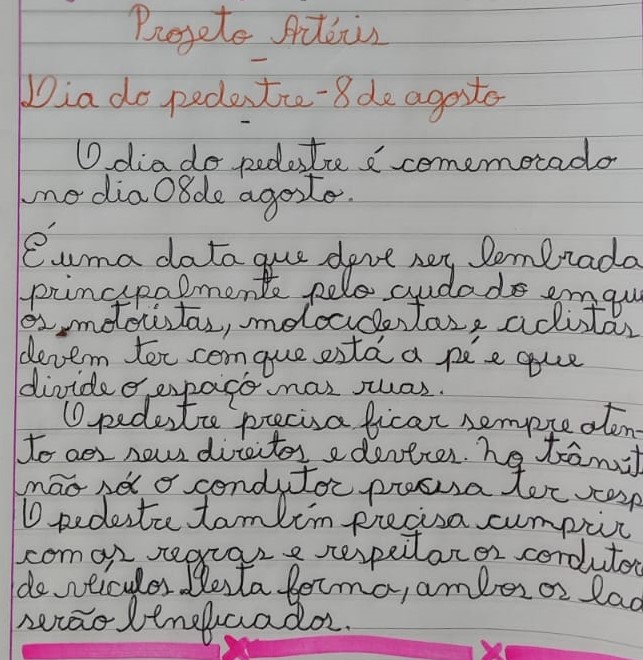 Projeto Artéris
Dia do pedestre - 8 de agosto
O dia do pedestre é comemorado
no dia 08 de agosto.
É uma data que deve ser lembrada
principalmente pelo cuidado em qu
os motoristas, motociclestas e ciclistas
devem ter com que está a pé e que
divide o espaço nas ruas.
O pedestre precisa ficar sempre aten-
to aos seus direitos e deveres. No trânsit
não só o condutor precisa ter resp
O pedestre também precisa cumprir
com as regras e respeitar os condutor
de veículos. Desta forma, ambos os lad
serão beneficiados.